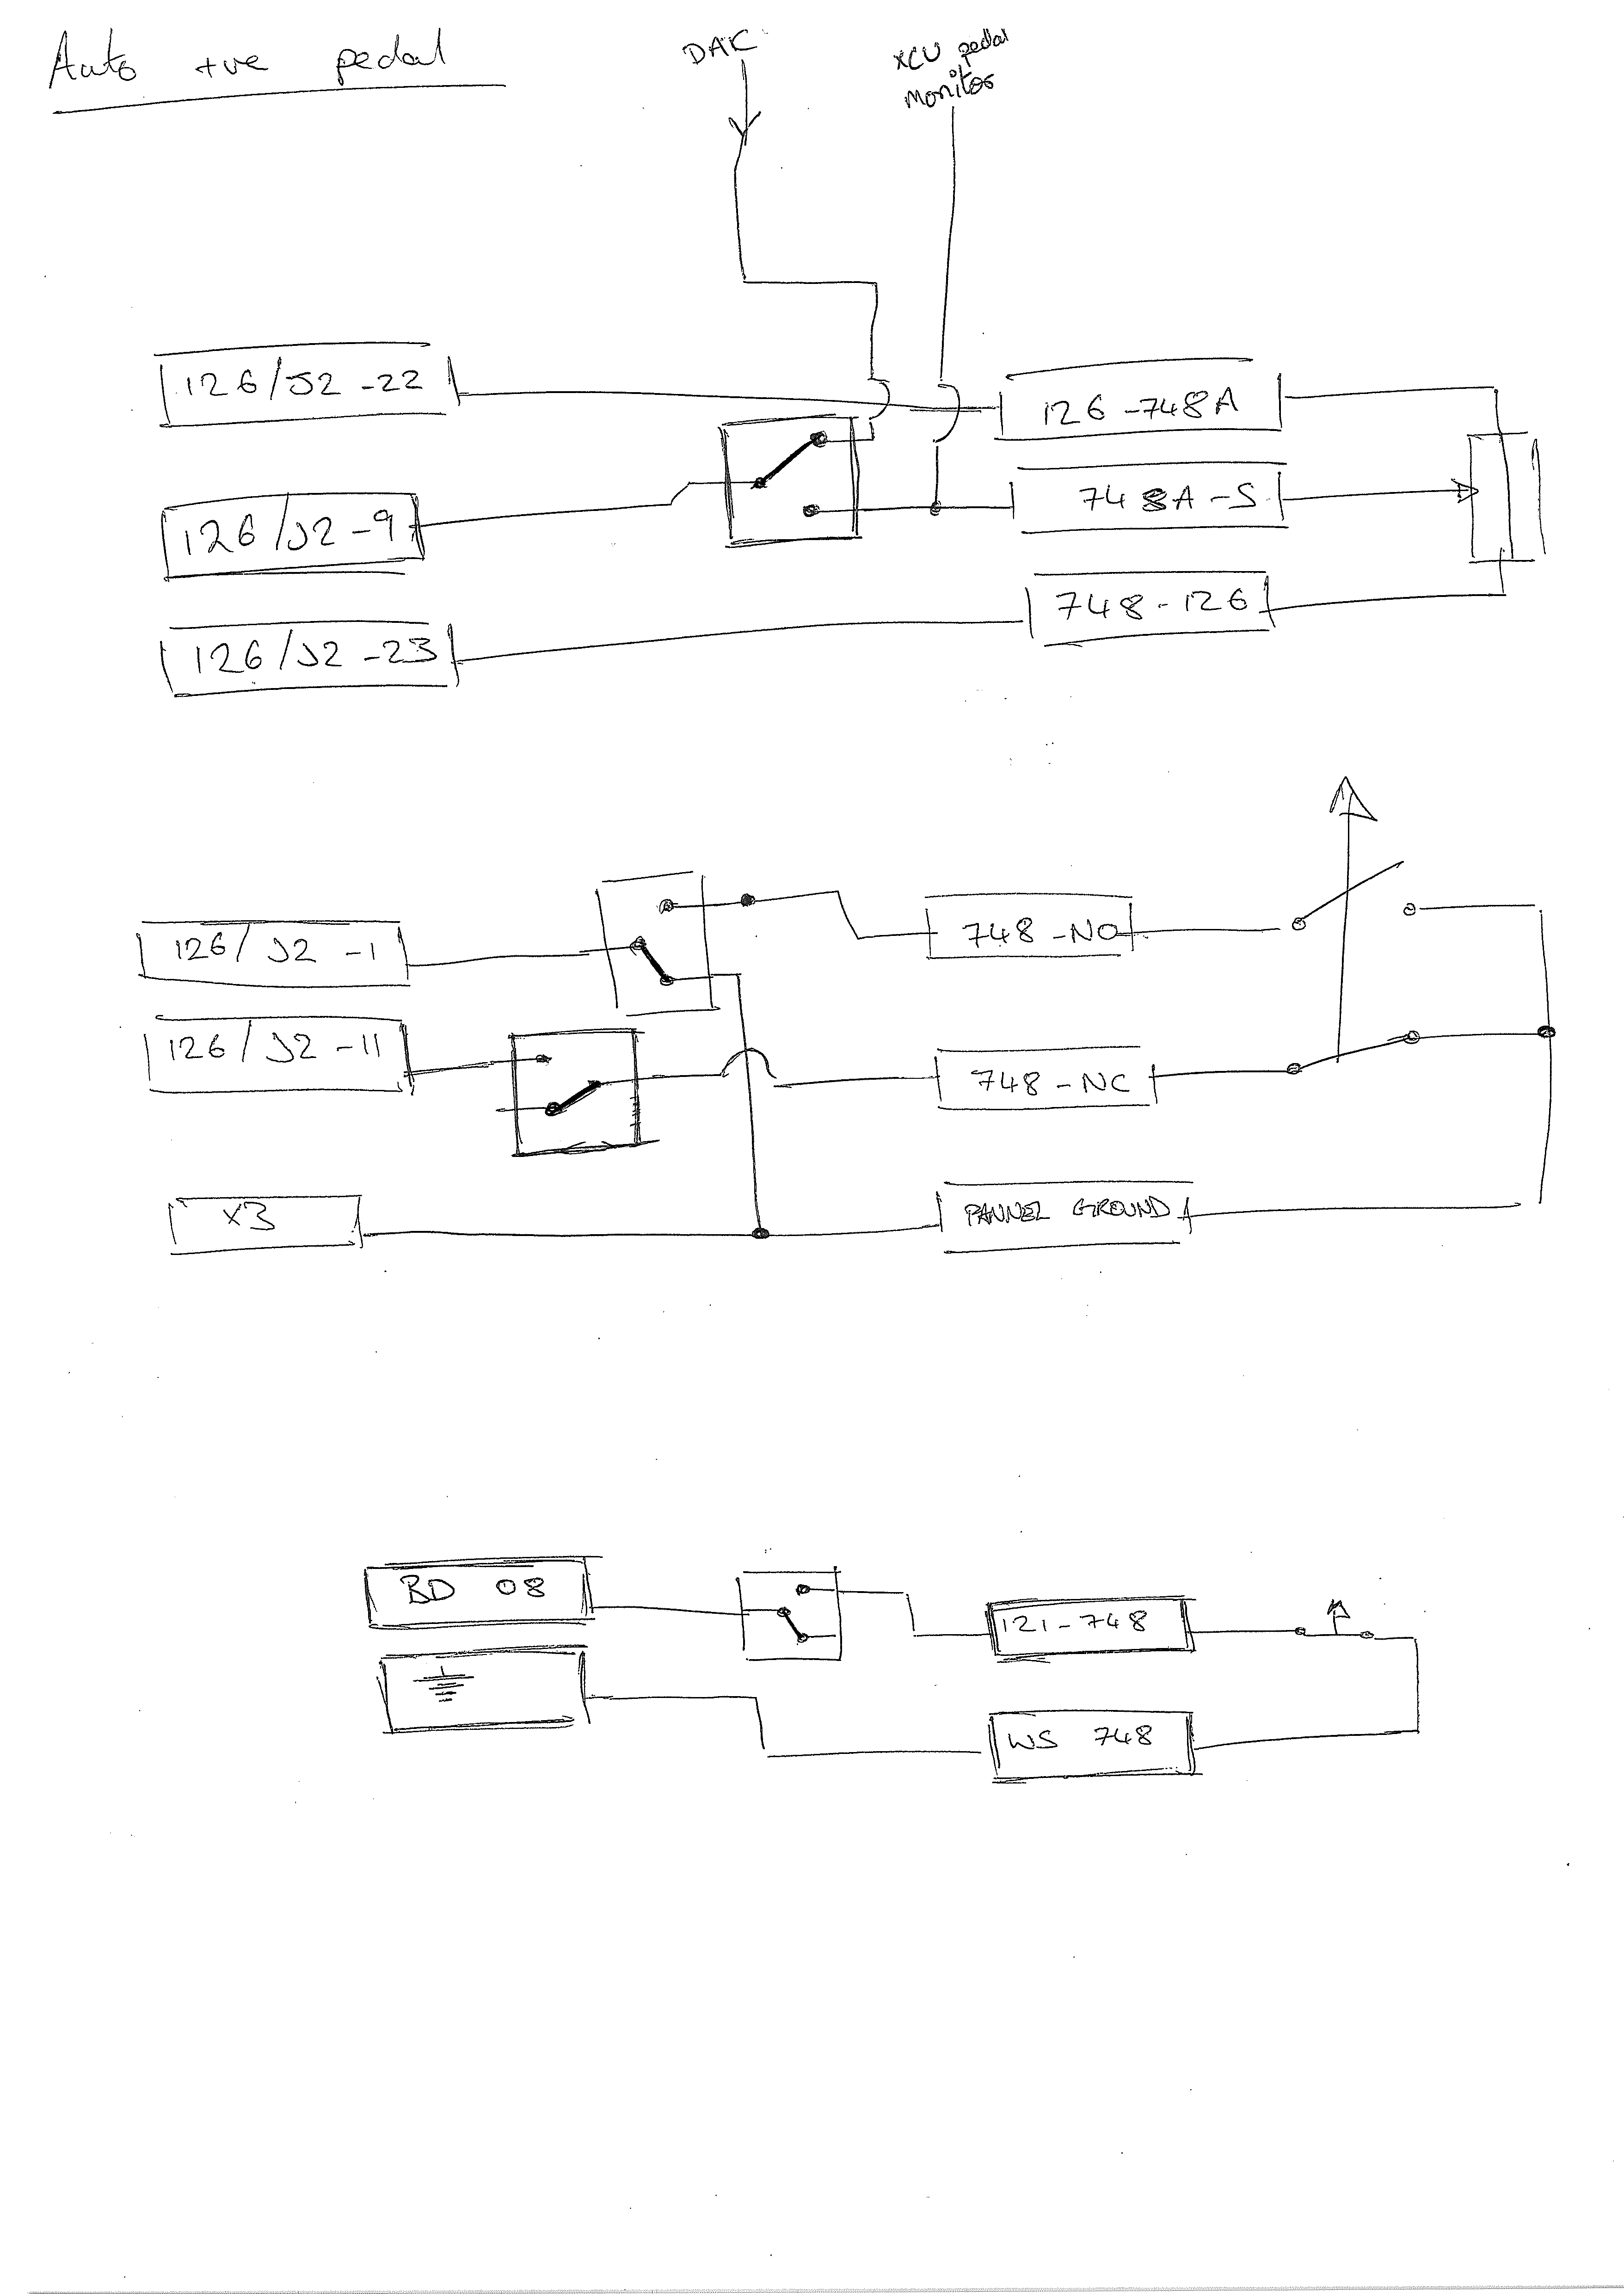 Auto +ve pedal
DAC
XCU pedal
monitor
126/J2-22
126-748A
126/J2-9
748A-S
748-126
126/J2-23
126/J2-1
748-NO
126/J2-11
748-NC
X3
PANNEL GROUND
BD 08
121-748
WS 748